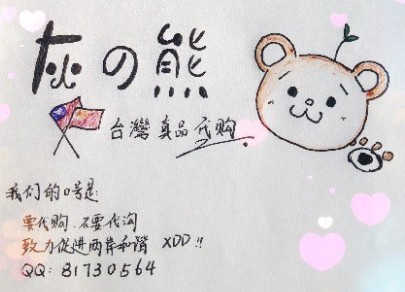 灰の熊
台灣真品代购
我们的口号是:
要代购.不要代沟
致力促进两岸和谐 XDD!!
QQ: 81730564